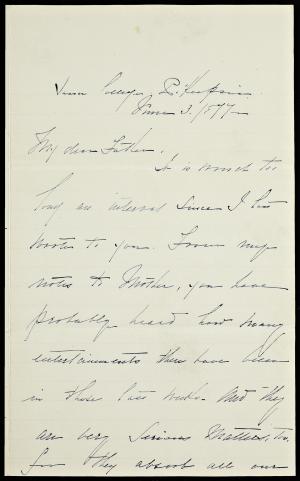 Vassar College, P'Keepsie.
June 3. 1877-
My dear Father,
It is much too
long an interval since I last
wrote to you. From my
notes to Mother, you have
probably heard how many
entertainments there have been
in these last weeks. And they
are very serious matters, too,
for they absorb all our